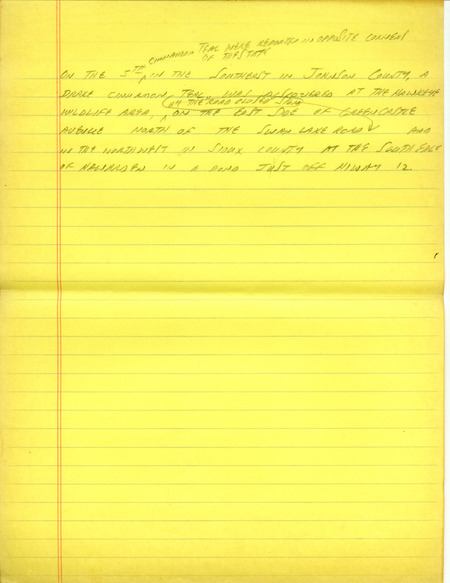 CINNAMON TEAL WERE REPORTED IN OPPOSITE CORNERS
OF THE STATE
ON THE 5TH IN THE SOUTHEAST IN JOHNSON COUNTY, A
DRAKE CINNAMON TEAL WAS DISCOVERED AT THE HAWKEYE
AT THE ROAD CLOSED SIGN
WILDLIFE AREA, ON THE EAST SIDE OF GREENCASTLE
AVENUE NORTH OF THE SWAN LAKE ROAD AND
IN THE NORTHWEST IN SIOUX COUNTY AT THE SOUTH EDGE
OF HAWARDEN IN A POND JUST OFF HIWAY 12.